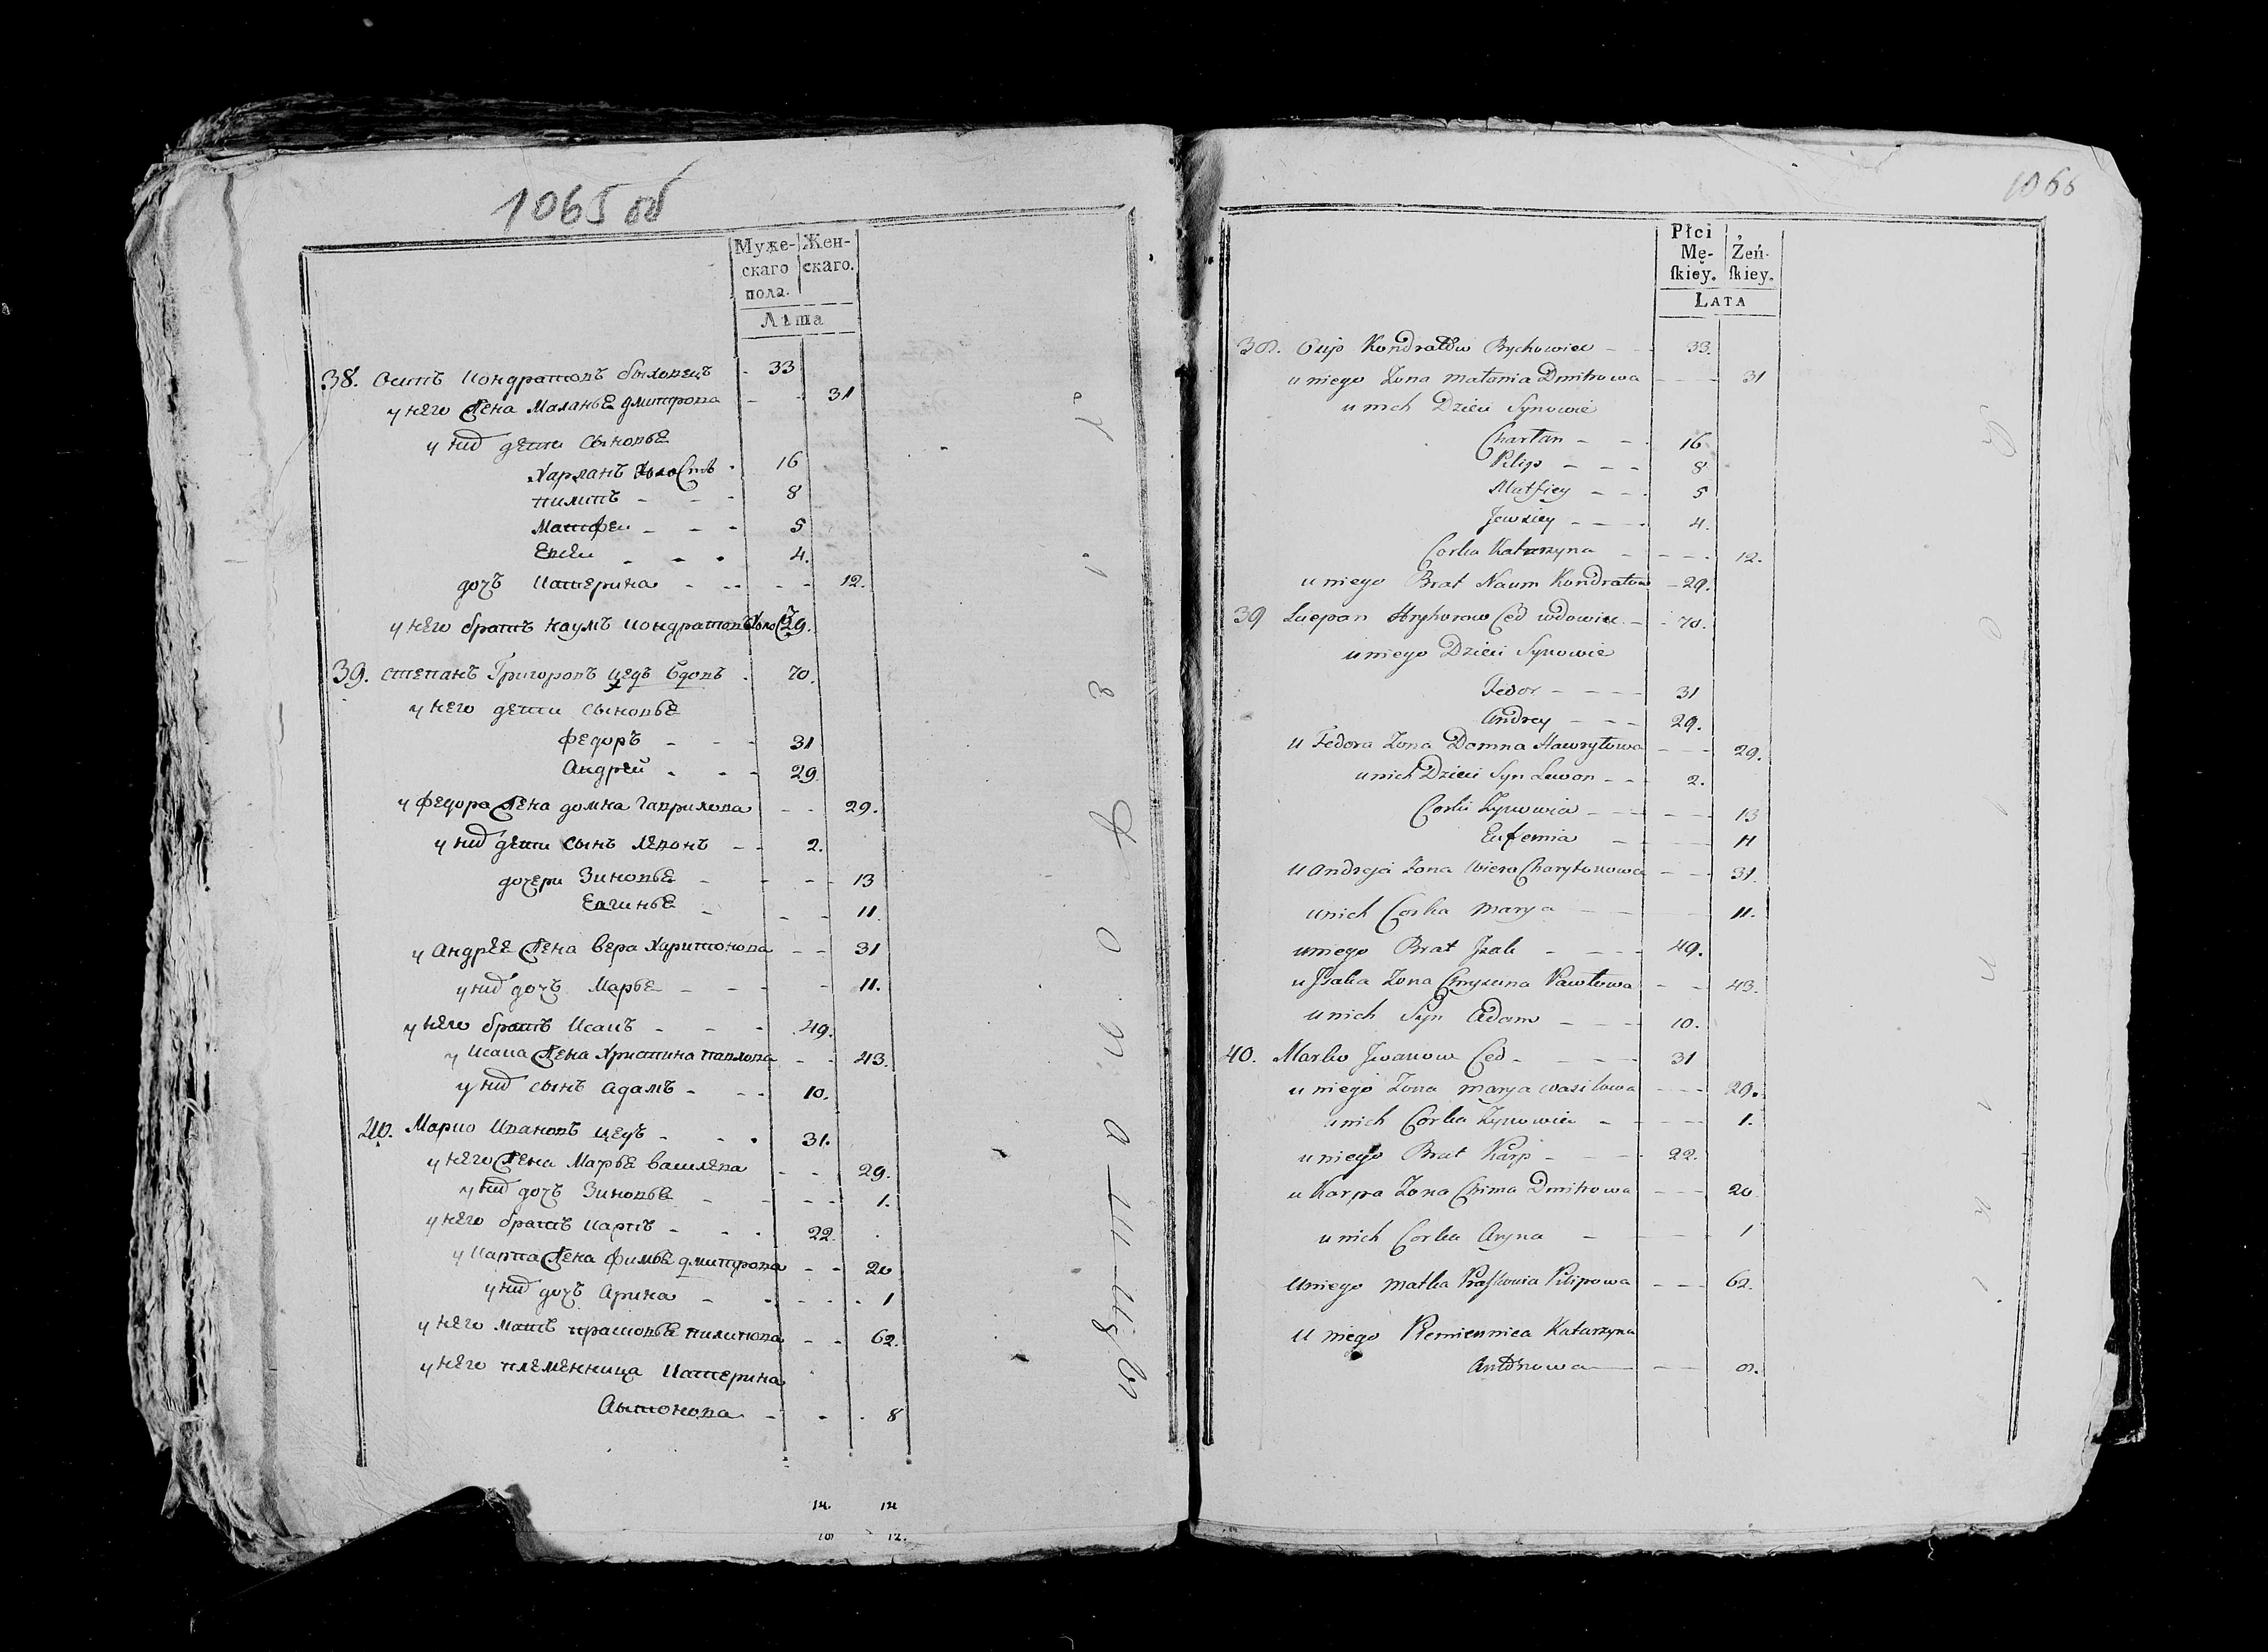 1065 об
Муже-
скаго
пола.
Жен-
скаго.
Лѣта
38. Осипъ Кондратовъ быховецъ - 33
у него жена Маланьѣ Дмитрова - - 31
у них дети сыновьѣ
Харланъ холостъ - 16
пилипъ - - - 8
Матфеи - - - 5
Евсеи - - - 4.
дочъ Катерина - - - - 12.
у него братъ наумъ кондратовъ холост 29.
39. степанъ Григоровъ цедъ вдовъ - 70.
у него дети сыновьѣ
федоръ - - - 31
Андрей - - - 29.
у федора жена домна гаврилова - - 29.
у них дети сынъ левонъ - - 2.
дочери Зиновьѣ - - - 13
Евгиньѣ - - - 11.
у Андрѣѣ жена вера Харитонова - - 31
у них дочъ Марьѣ - - - - 11.
у него братъ Исакъ - - - 49.
у Исака жена Христина павлова - - 43.
у них сынъ адамъ - - - 10.
40. Марко Ивановъ цедъ - - - 31.
у него жена Марьѣ василева - - 29.
у них дочъ Зиновьѣ - - - - 1.
у него братъ карпъ - - - 22.
у карпа жена фимьѣ дмитрова - - 20
у них дочъ Арина - - - - 1
у него мать прасковьѣ пилипова - - 62.
у него племенница Катерина
Антонова - - - 8
14. 12
12.
1066
Płci
Mę-
skiey.
Żeń-
skiey.
LATA
38. Osip Kondratów Bychowiec - - 33.
u niego Żona Małania Dmitrowa - - - 31
u nich Dzieci Synowie
Charłan - - - 16.
Pilip - - - 8
Matfiey - - - 5
Jewsiey - - - 4.
Corka Katarzyna - - - - 12.
u niego Brat Naum Kondratow - 29.
39 Sciepan Hryhorow Ced wdowiec - - 70.
u niego Dzieci Synowie
Fedor - - - - 31
Andrey - - - 29.
u Fedora Żona Domna Hawryłowa - - - 29.
u nich Dzieci Syn Lewon - - 2.
Corki Zynowia - - - - - 13
Eufemia - - - 11
u Andreja Żona Wiera Charytonowa - - - 31.
u nich Corka Marya - - - 11.
u niego Brat Jzak - - - - 49.
u Jsaka Żona Chrystina Pawłowa - - 43.
u nich Syn Adam - - - 10.
40. Marko Jwanow Ced - - - - 31
u niego Żona Marya Wasilowa - - - 29.
u nich Corka Zynowia - - - - 1.
u niego Brat Karp - - - - 22.
u Karpa Żona Chima Dmitrowa - - - 20
u nich Corka Aryna - - - - 1
u niego Matka Praskowia Pilipowa - - - 62.
u niego Plemiennica Katarzyna
Antonowa - - - 8.